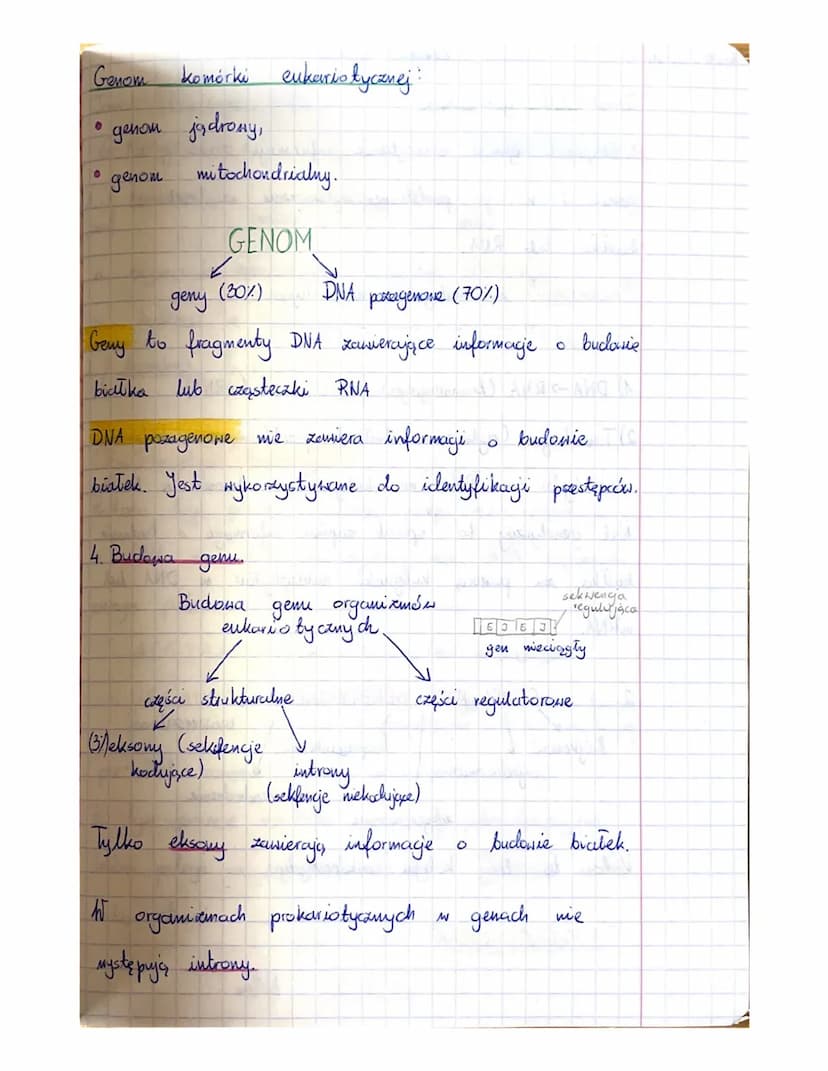 Genom komórki eukariotycznej:
• genom jądrowy,
• genom mitochondrialny.
GENOM
geny (30%) DNA pozagenowe (70%)
Geny to fragmenty DNA zawierające informacje o budowie
białka lub cząsteczki RNA
DNA pozagenowe nie zawiera informacji o budowie
białek. Jest wykorzystywane do identyfikacji przestępców.
4. Budowa genu.
Budowa genu organizmów
eukariotycznych
sekwencja
regulująca
E I E I
gen nieciągły
części strukturalne części regulatorowe
(3%) eksony (sekfencje
kodujące)
introny
(sekfencje niekodujące)
Tylko eksony zawierają informacje o budowie białek.
W organizmach prokariotycznych w genach nie
występują introny.